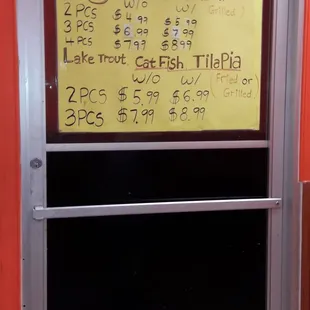 2 PCS w/o w/ Grilled
$4.99 $5.99
3 PCS $6.99 $7.99
4 PCS $7.99 $8.99
Lake Trout Cat Fish TilaPia
w/o w/ (Fried or
2 PCS $5.99 $6.99 Grilled)
3 PCS $7.99 $8.99